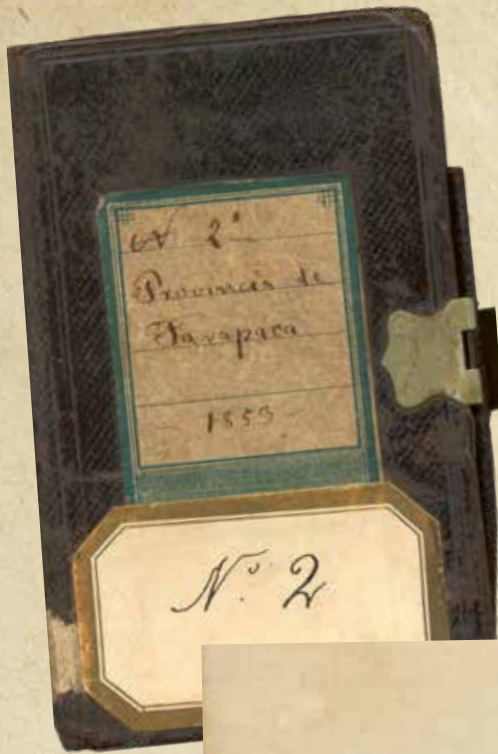 N 2°
Provincia de
Tarapaca
1853
N.° 2